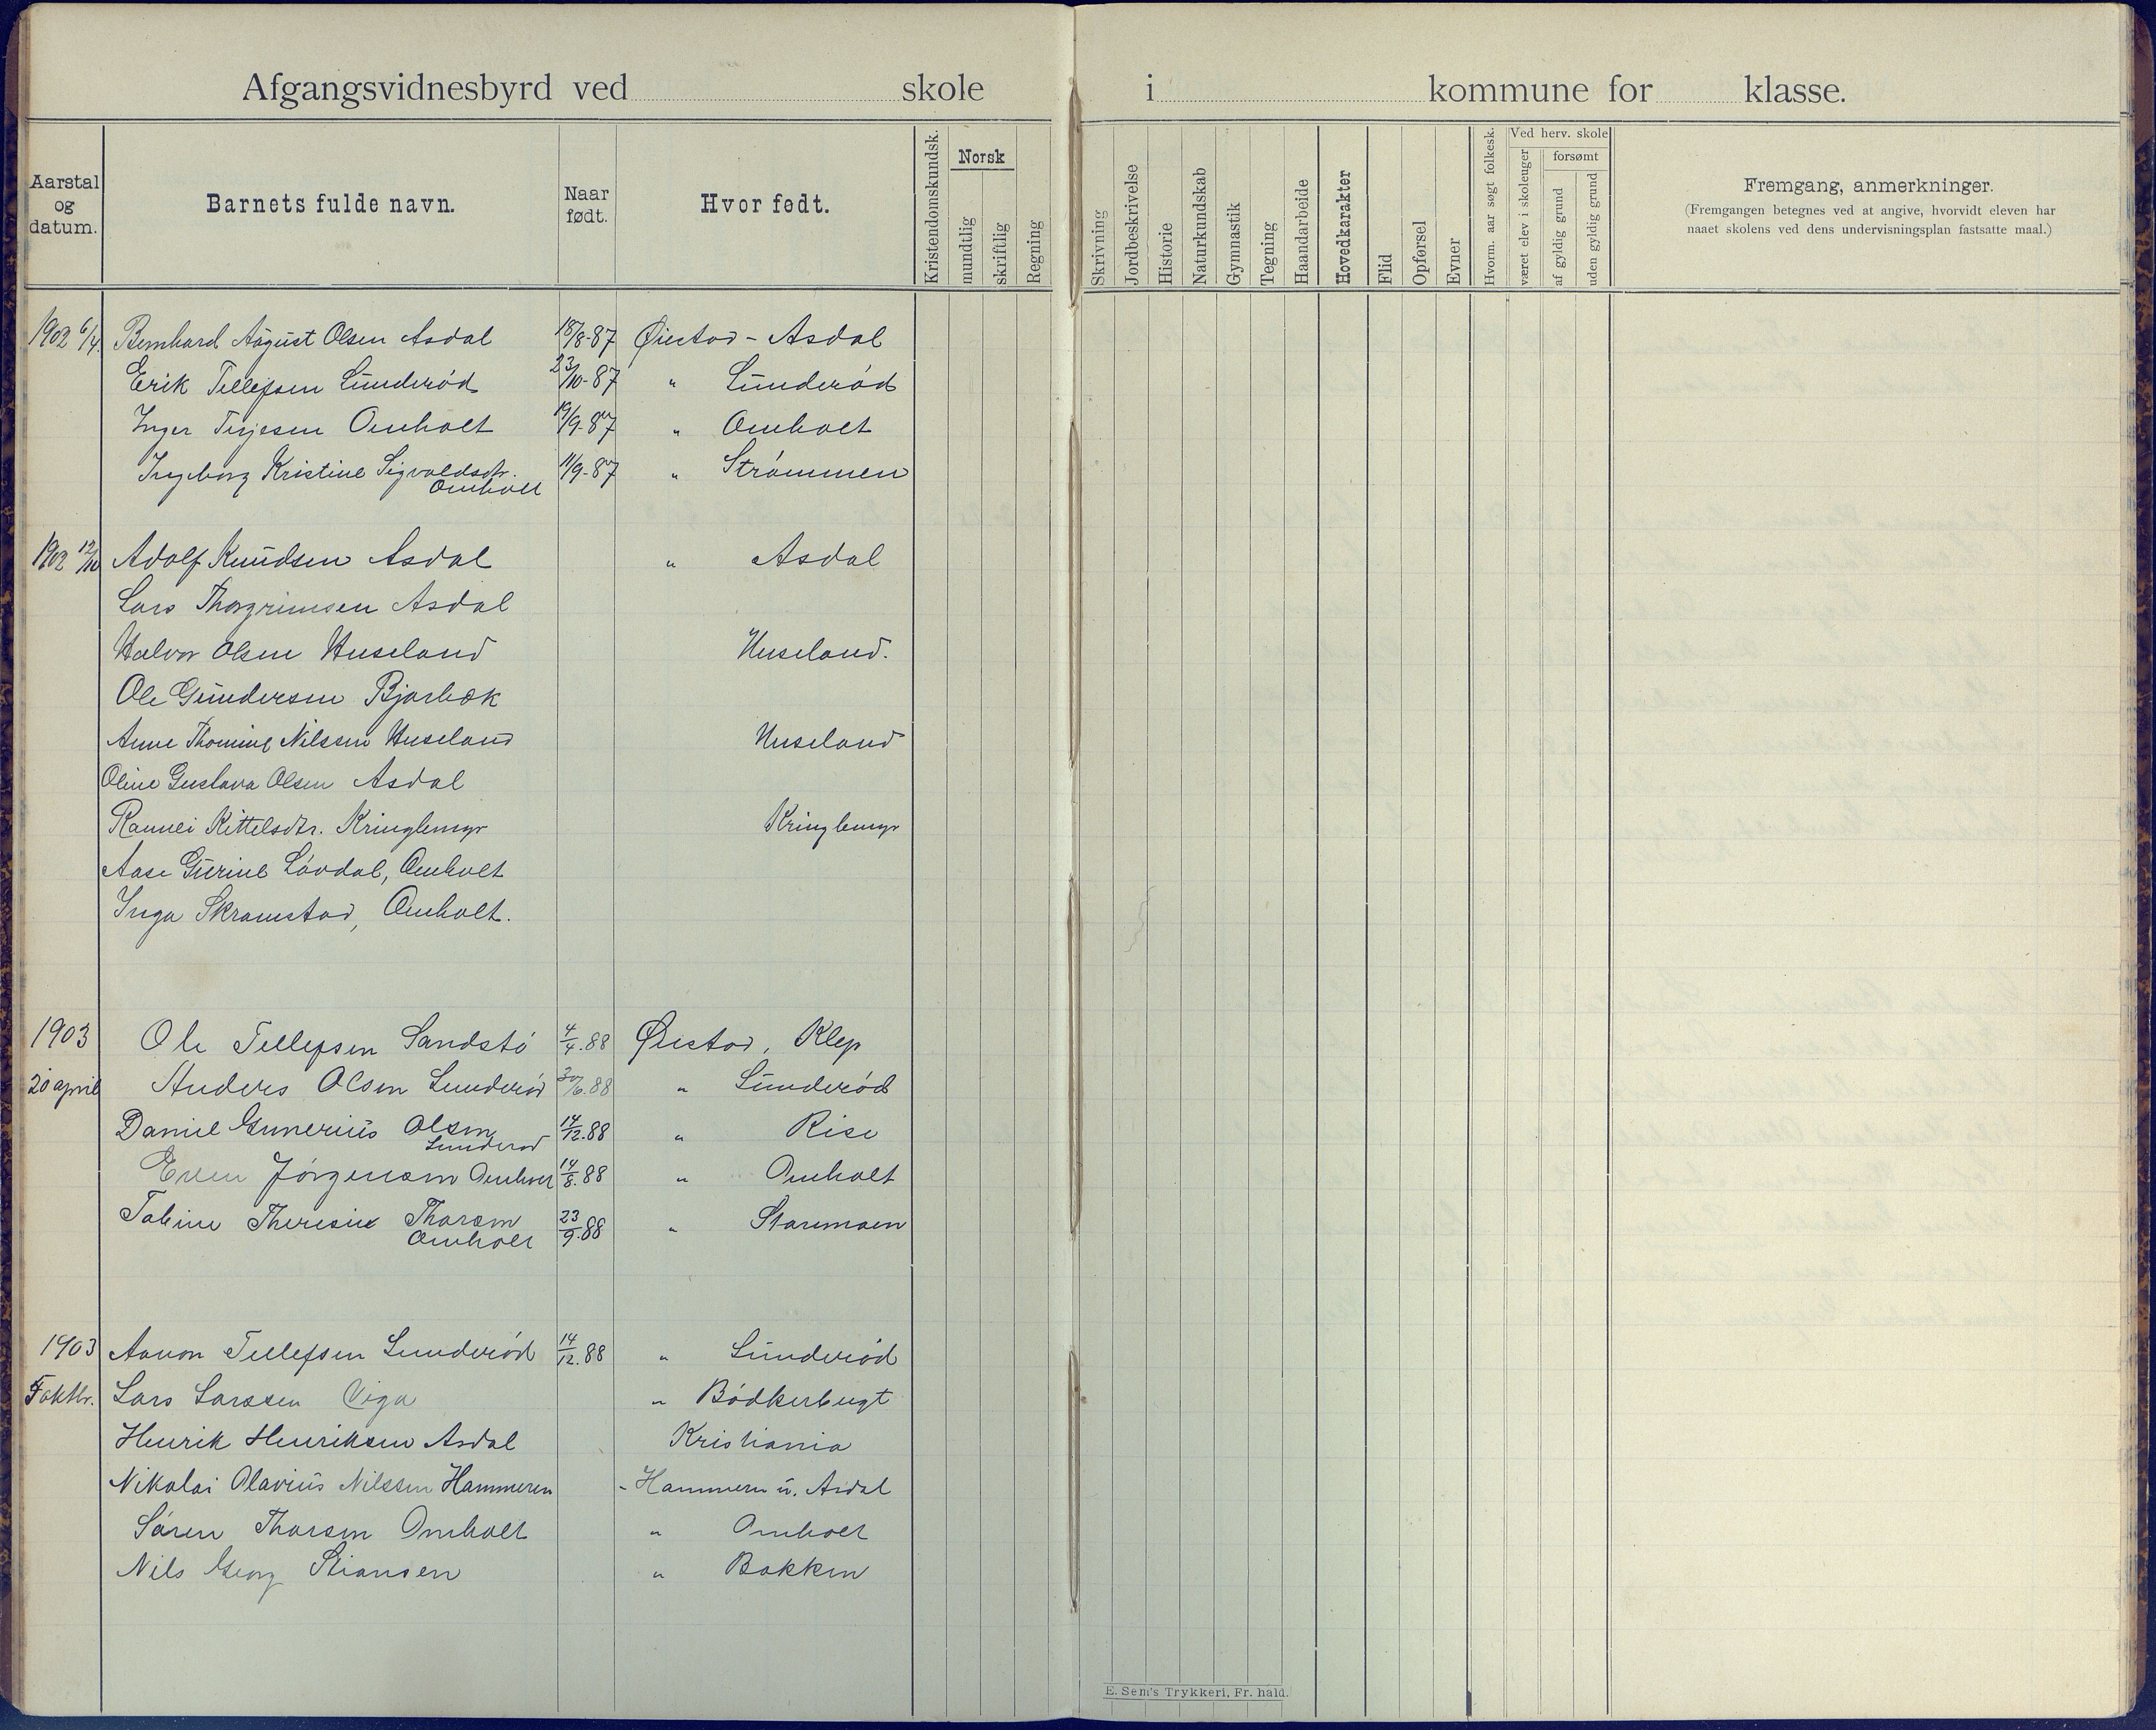 Afgangsvidnesbyrd ved skole i kommune for klasse.
Aarstal og datum.
Barnets fulde navn.
Naar født.
Hvor født.
Kristendomskundsk.
Norsk
mundtlig
skriftlig
Regning
Skrivning
Jordbeskrivelse
Historie
Naturkundskab
Gymnastik
Tegning
Haandarbeide
Hovedkarakter
Flid
Opførsel
Evner
Hvorm. aar søgt folkesk.
Ved herv. skole
været elev i skoleuger
forsømt
af gyldig grund
uden gyldig grund
Fremgang, anmerkninger.
(Fremgangen betegnes ved at angive, hvorvidt eleven har
naaet skolens ved dens undervisningsplan fastsatte maal.)
1902 6/4. Bernhard August Olsen Asdal 18/8-87 Øiestad - Asdal
Erik Tellefsen Lunderød 23/10-87 " Lunderød
Inger Terjesen Omholt 19/9-87 " Omholt
Ingeborg Kristine Sigvaldsdtr. 11/9-87 " Strømmen
Omholt
1902 12/10 Adolf Knudsen Asdal " Asdal
Lars Thorgrimsen Asdal
Halvor Olsen Huseland Huseland.
Ole Gundersen Bjorbæk
Anne Thomine Nilssen Huseland Huseland
Oline Gustava Olsen Asdal
Rannei Kittelsdtr. Kringlemyr Kringlemyr
Aase Gurine Løvdal, Omholt
Inga Skramstad, Omholt.
1903 Ole Tellefsen Sandstø 4/4.88 Øiestad, Klep
20 april Anders Olsen Lunderød 30/6.88 " Lunderød
Daniel Gunerius Olsen 14/12.88 " Rise
Lunderød
Even Jørgensen Omholt 14/8.88 " Omholt
Tobine Theresie Thorsen 23/9.88 " Staremoen
Omholt
1903 Aanon Tellefsen Lunderød 14/12.88 " Lunderød
5 oktbr. Lars Larssen Viga " Bødkerbugt
Henrik Henriksen Asdal Kristiania
Nikolai Olavius Nilssen Hammeren - Hammern u. Asdal
Søren Thorsen Omholt " Omholt
Nils Georg Stiansen " Bakken
E. Sem's Trykkeri, Fr. hald.